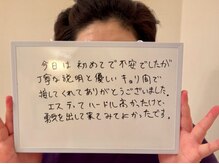 今日は初めてで不安でしたが
丁寧な説明と優しいキョリ間で
接してくれてありがとうございました。
エステってハードル高かったけど、
勇気を出して来てみてよかったです。